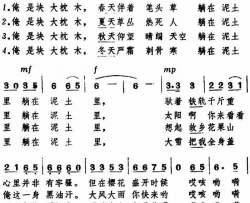 1.俺是块大枕木， 春天伴着 笔头草 躺在泥土
2.俺是块大枕木， 夏天草丛 热死人 躺在泥土
3.俺是块大枕木， 秋天仰望 晴烟天空 躺在泥土
4.俺是块大枕木， 冬天严霜 刺骨寒 躺在泥土
mf f mp
3035 5 665 3 6 65 3·33 2231
里躺在 泥土 里， 驮着铁轨千斤重
里躺在 泥土 里， 太阳啊 你来看看
里躺在 泥土 里， 想起故乡花果山
里躺在 泥土 里， 大雪把我全身盖
心里并非 有牢骚。 但在樱花 盛开时候 哎咳 哟啊
俺这一身 黑油汗。 大风大雨 你快来哟 哎咳 哟嗬